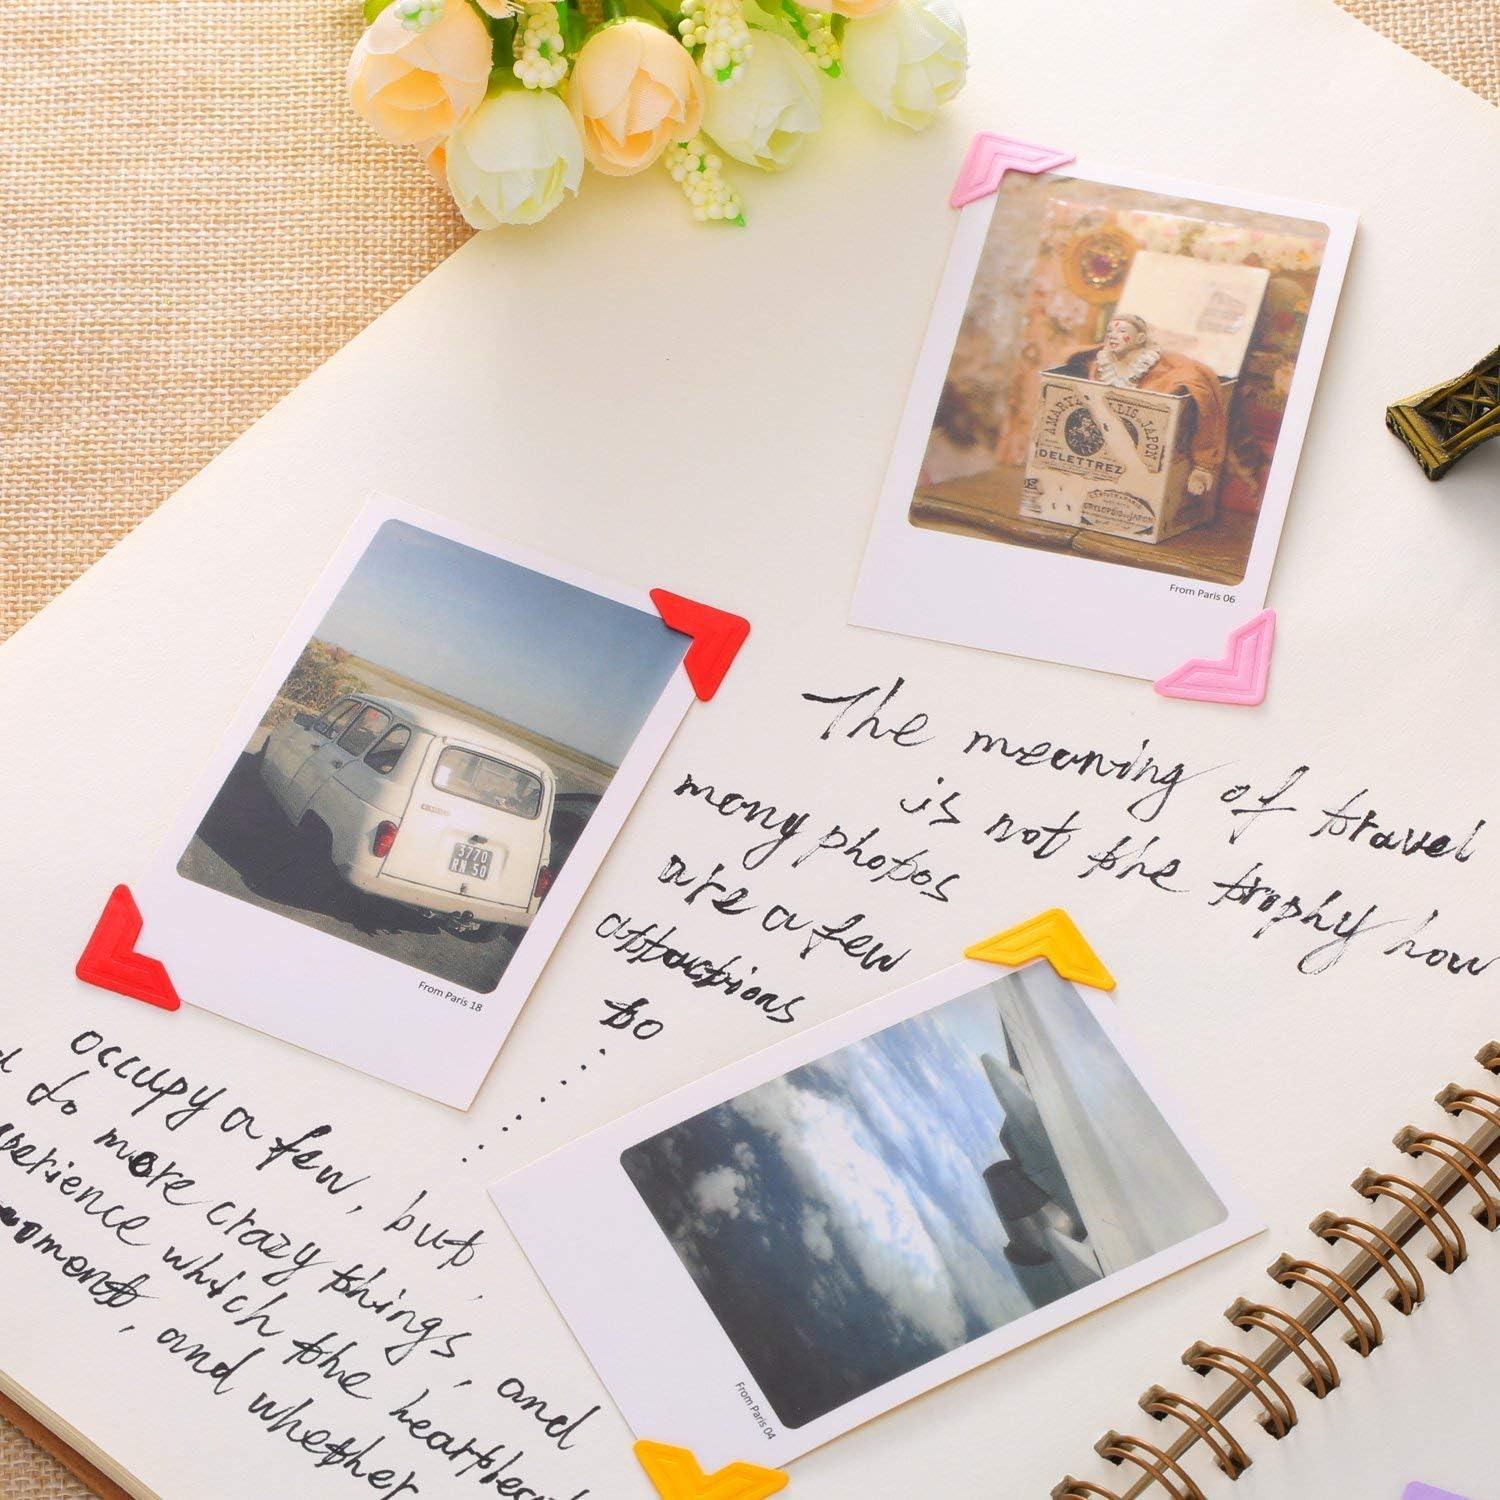 LAMARYLLIS DU JAPON
DELETTREZ
From Paris 06
3770
RN 50
From Paris 18
The meaning of travel
is not the trophy how
many photos
are a few
attractions
to ......
From Paris 04
occupy a few, but,
do more crazy things, and
which the
and whether